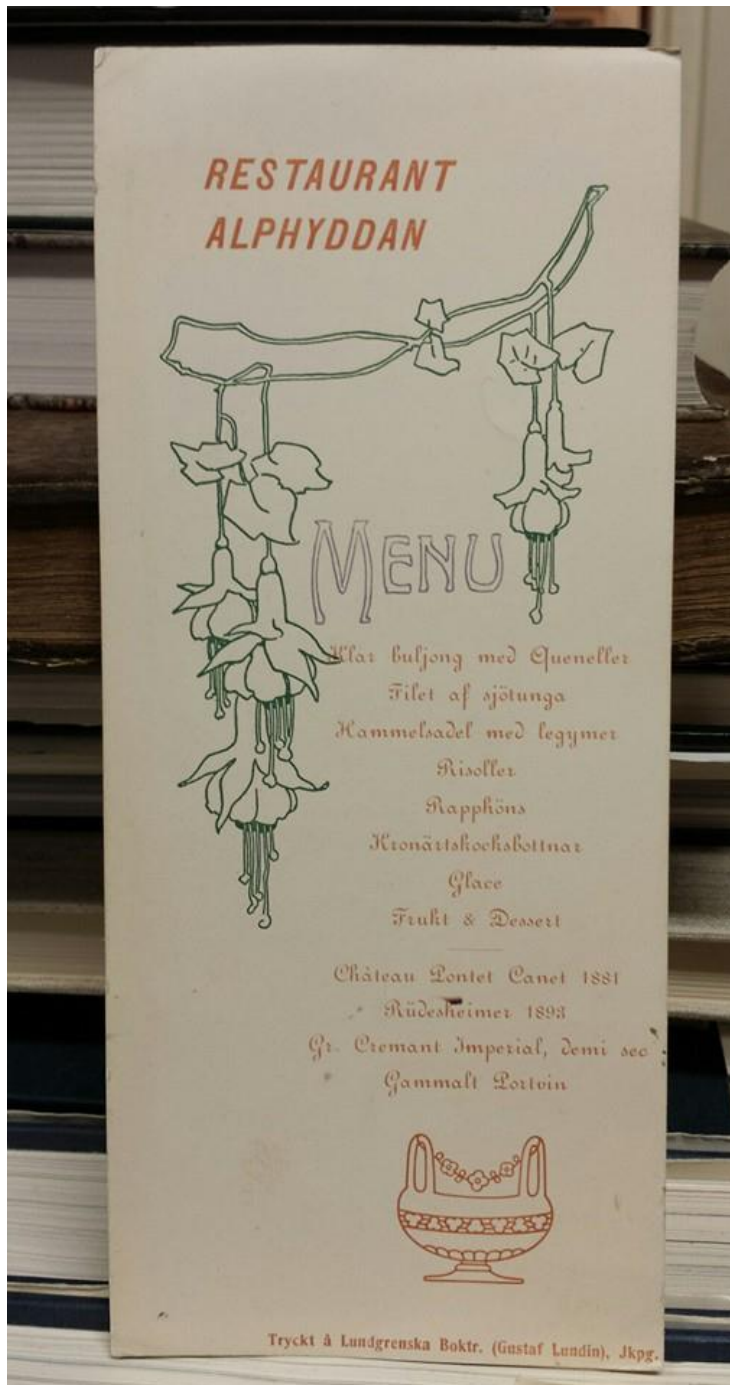 RESTAURANT
ALPHYDDAN
MENU
Klar buljong med Queneller
Filet af sjötunga
Hammelsadel med legymer
Risoller
Rapphöns
Kronärtskocksbottnar
Glace
Frukt & Dessert
Château Pontet Canet 1881
Rüdesheimer 1893
Gr. Cremant Imperial, demi sec
Gammalt Portvin
Tryckt å Lundgrenska Boktr. (Gustaf Lundin), Jkpg.